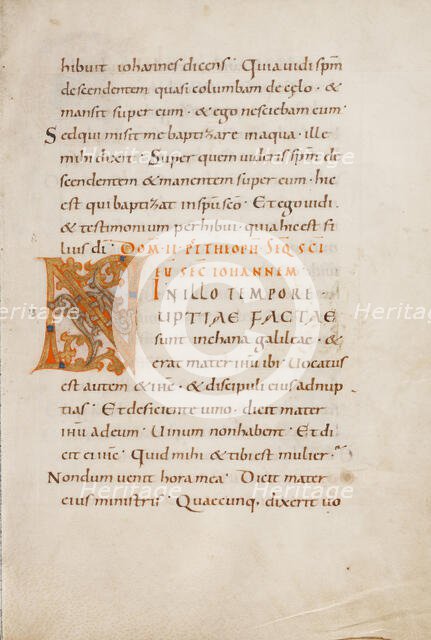 hibuit iohannes dicens · Quia uidi spm
descendentem quasi columbam de cęlo · &
mansit super eum · & ego nesciebam eum ·
Sed qui misit me baptizare in aqua · ille
mihi dixit · Super quem uideris spm de
scendentem & manentem super eum · hic
est qui baptizat in spu sco · Et ego uidi ·
& testimonium perhibui · quia hic est fi
lius di · DOM · II · P THEOPH · SEQ SCI
EU SEC IOHANNEM ·
IN ILLO TEMPORE ·
NUPTIAE FACTAE
sunt in chana galileae · &
erat mater ihu ibi · Uocatus
est autem & ihc · & discipuli eius ad nup
tias · Et deficiente uino · dicit mater
ihu ad eum · Uinum non habent · Et di
cit ei ihc · Quid mihi & tibi est mulier ·
Nondum uenit hora mea · Dicit mater
eius ministris · Quaecunq· dixerit uo
Heritage
Heritage
Heritage
Heritage
Heritage
Heritage